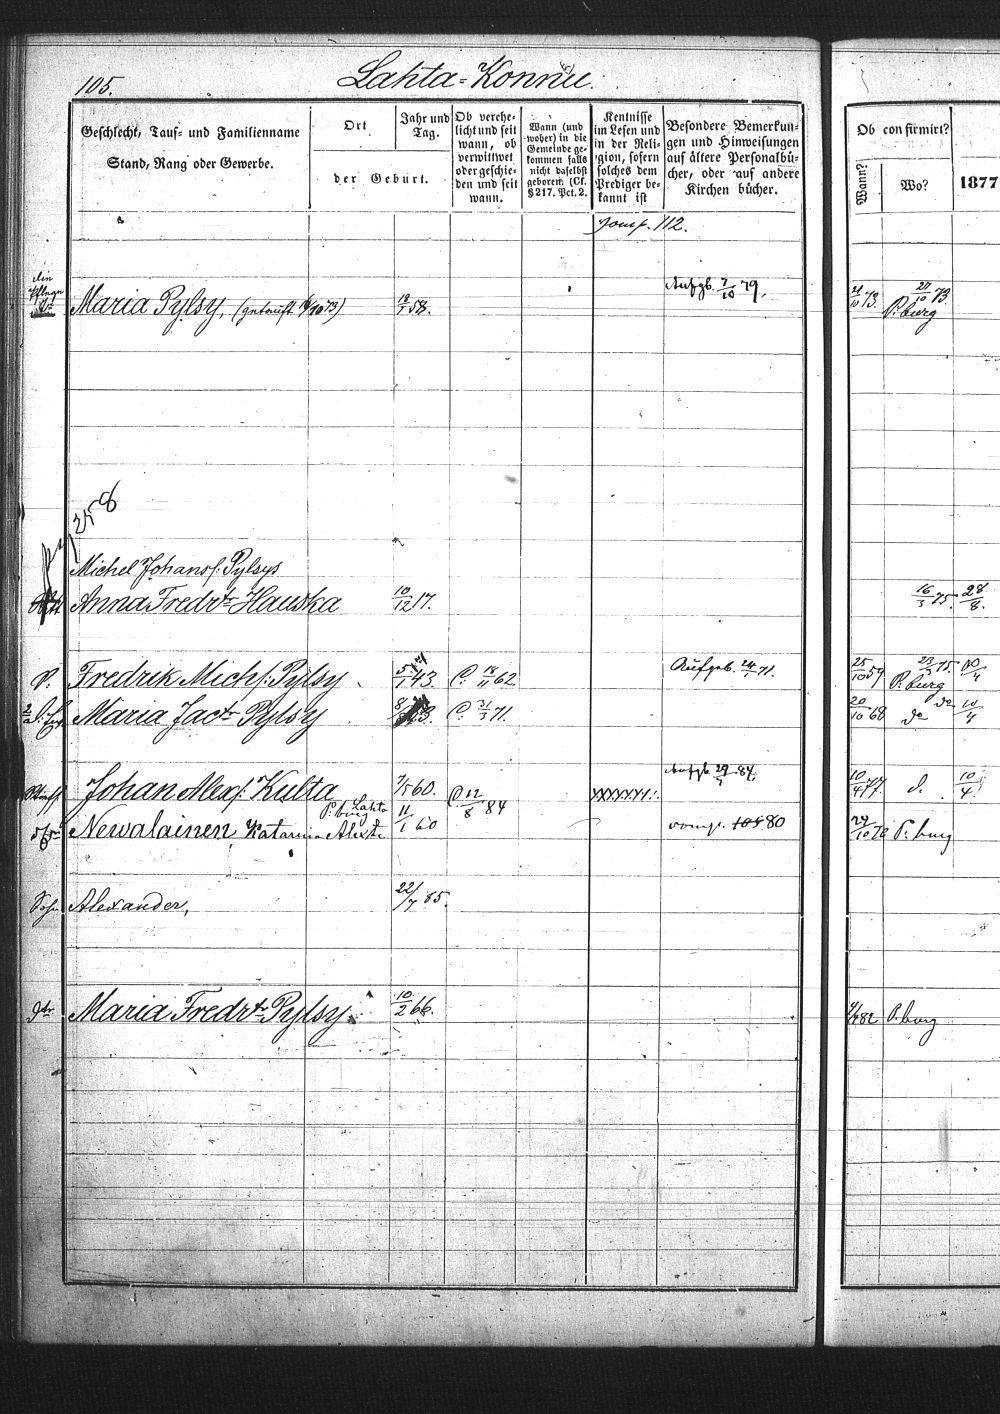 105.
Lahta-Konnu.
Geschlecht, Tauf- und Familienname
Stand, Rang oder Gewerbe.
Ort
der Geburt.
Jahr und
Tag.
Ob verehe-
licht und seit
wann, ob
verwittwet
oder geschie-
den und seit
wann.
Wann (und
woher) in die
Gemeinde ge-
kommen falls
nicht daselbst
geboren. (Cf.
§ 217. Pct. 2.
Kentnisse
im Lesen und
in der Reli-
gion, sofern
solches dem
Prediger be-
kannt ist
Besondere Bemerkun-
gen und Hinweisungen
auf ältere Personalbü-
cher, oder auf andere
Kirchen bücher.
Ob confirmirt?
Wann?
Wo?
1877
112.
Maria Pylsy, (getauft 14/10 73) 18/7 58. Aufgb. 7/10 79. 21/10 73. 21/10 73.
P. burg
258
Michel Johans f. Pylsys
Anna Fredr tr Hauska 10/12 17. 16/3 75. 28/8.
Fredrik Mich f. Pylsy 5/1 43. C. 18/11 62. Aufgeb. 24/1 71. 25/10 59 23/3 75.
P. burg
Maria Jac tr Pylsy C. 31/3 71. 20/10 68 do do 10/4
Johan Alex f. Kulta 7/5 60. C. 12/8 84 Aufgb. 29/7 84. xxxxxxx. 10/4 77 d. 10/4.
P. burg Lahta
Newalainen Katarina Alex tr 11/1 60 vom p. 80 24/10 P. burg
Sohn Alexander, 22/7 85.
dtr Maria Fredr tr Pylsy 10/2 66. 82 P. burg